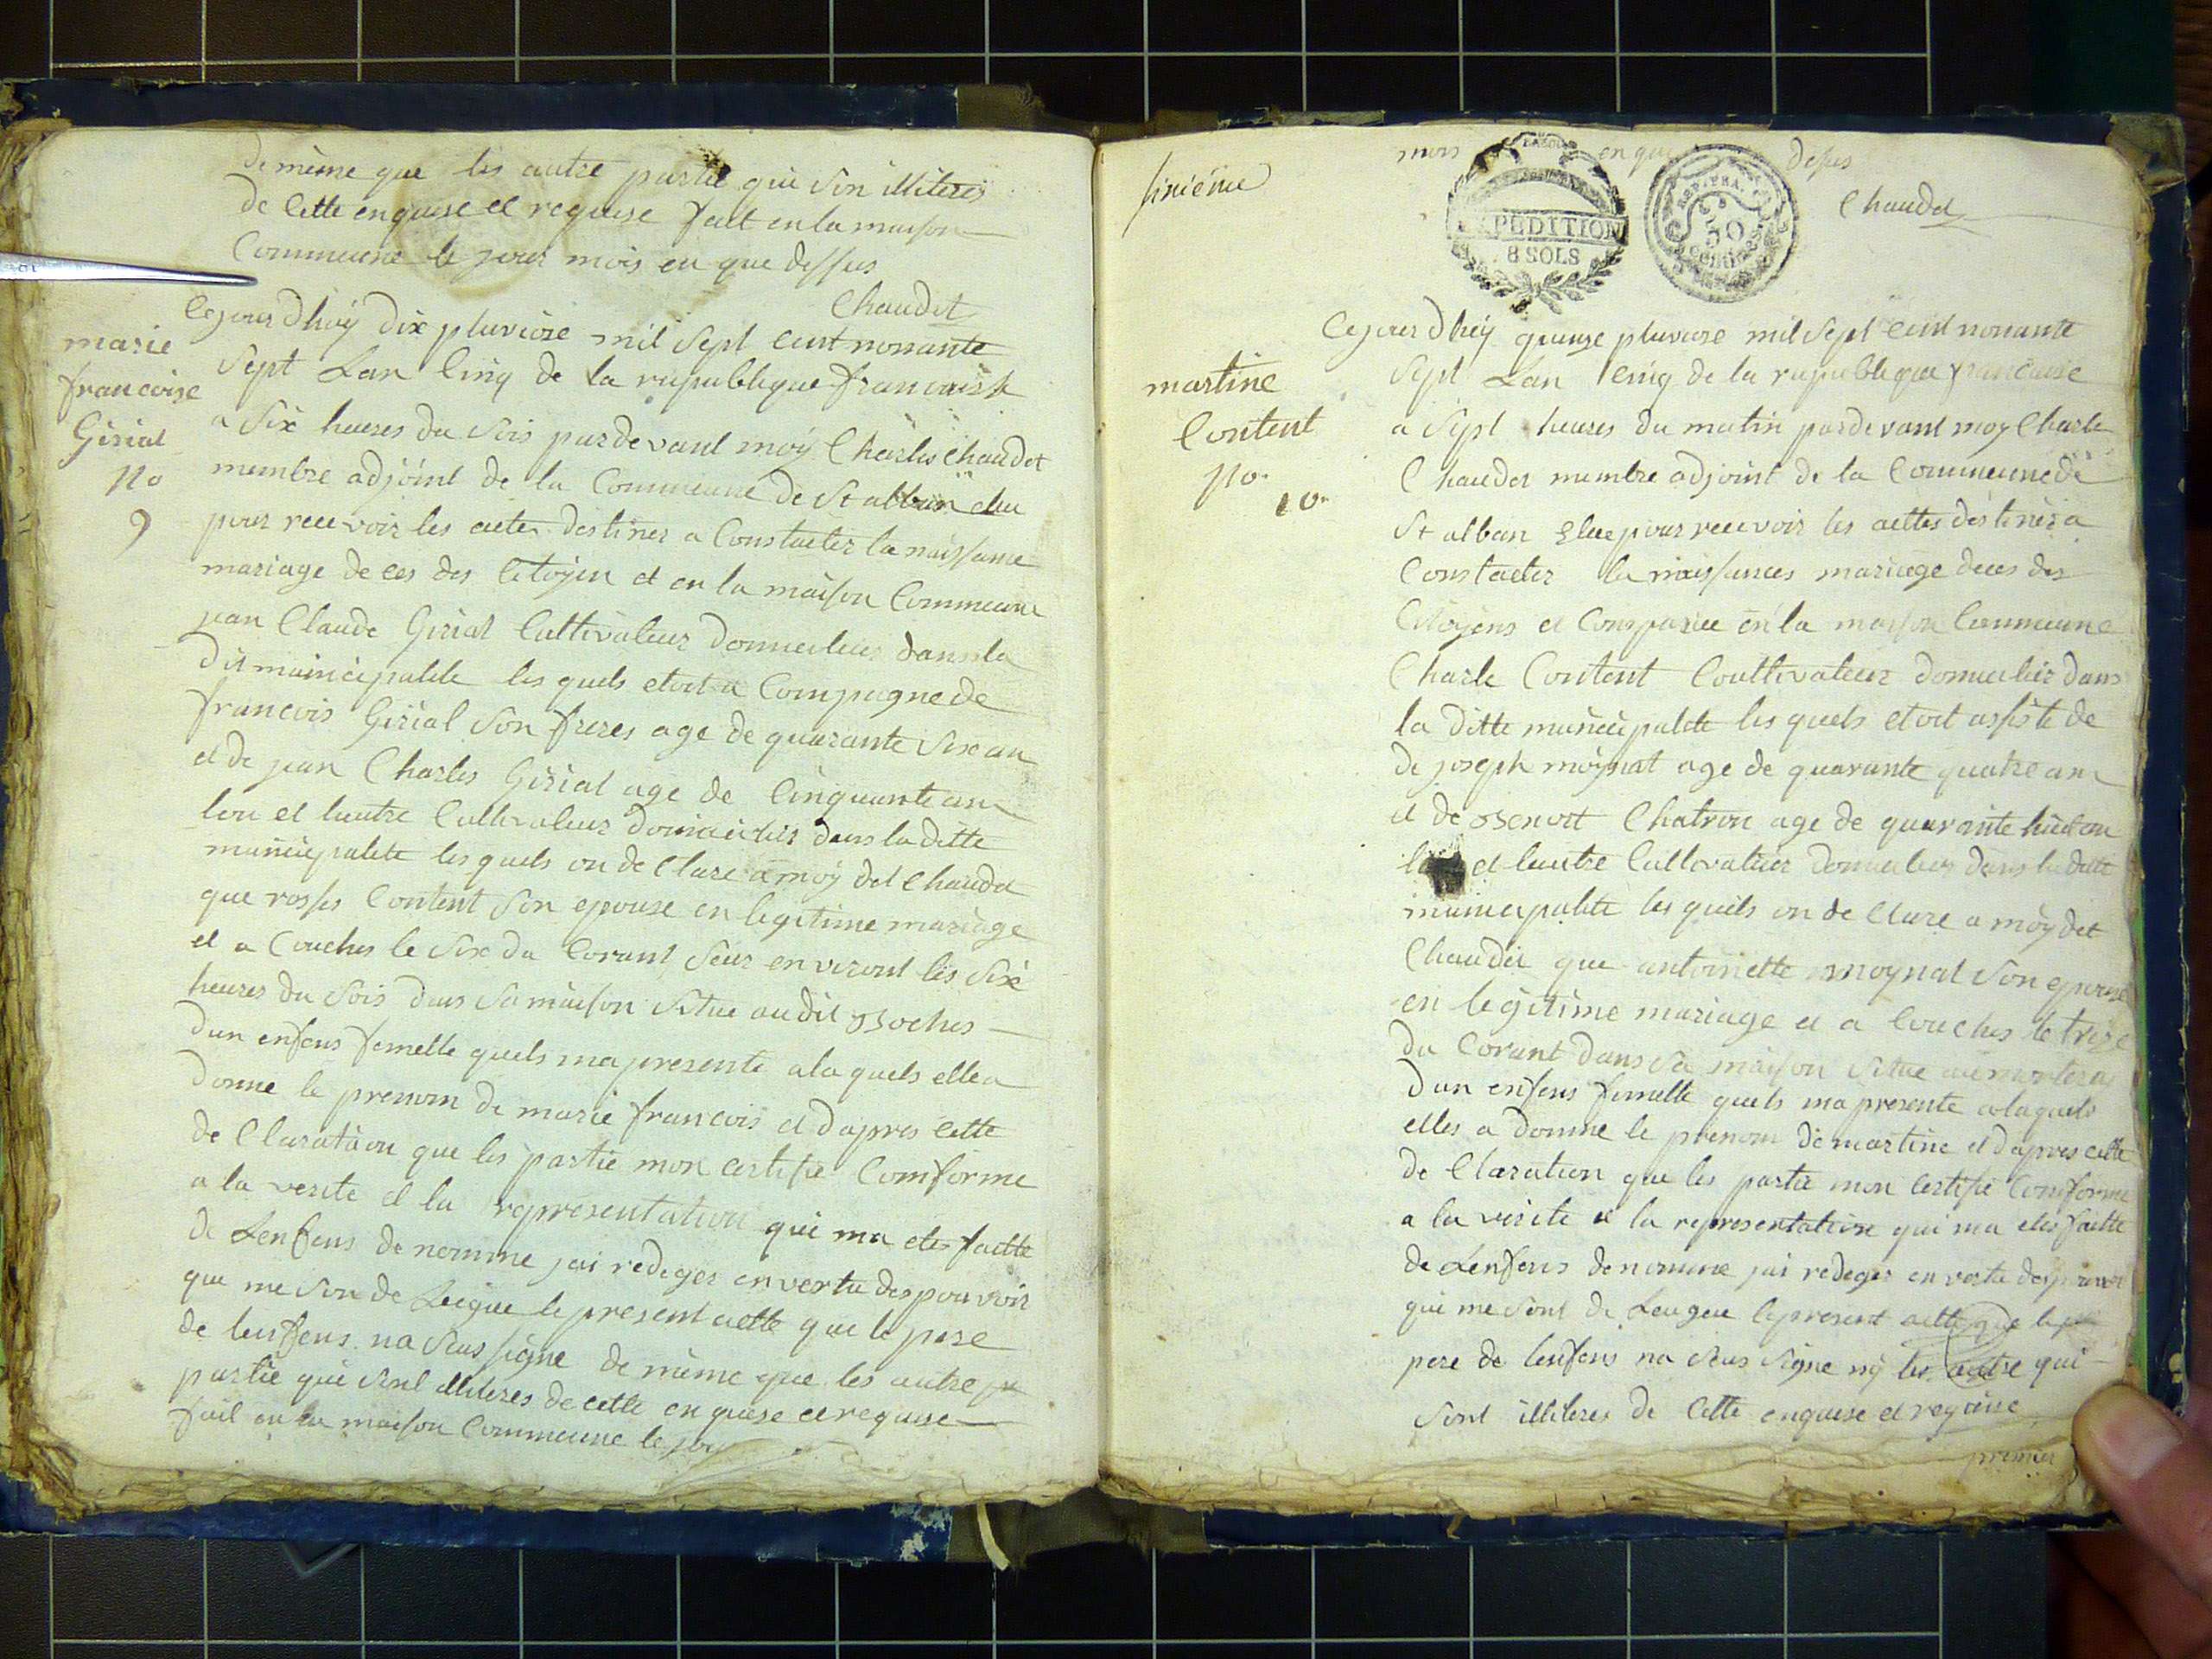 de même que les autre partie qui son illiteres
de Cette enquise et requise fait en la maison
Commeune le jour mois en que dessus
Chaudet
marie
francoise
Girial
no
9
Cejourdhuy dix pluviose mil sept cent nonante
sept Lan Cinq de la republique francaise
a Six heures du soir pardevant moy Charles Chaudet
membre adjoint de la Commeune de St alban elu
pour recevoir les actes destines a Constacter la naissance
mariage deces des Citoyen et en la maison Commeune
jean Claude Girial Cultivateur domicilier dans la
dit municipalite les quels etoit a Compagne de
francois Girial son freres age de quarante six an
et de jean Charles Girial age de Cinquante an
lun et lautre Cultivateur domicilier dans la ditte
municipalite les quels on de Clare a moy dit Chaudet
que rosses Content son epouse en legitime mariage
et a Couches le six du Corant seur environt les six
heures du soir dans sa maison situe au dit Boches
dun enfens femelle quels ma presente a la quels elle a
donne le prenom de marie francois et dapres cette
de Claration que les partie mon certifie Comforme
a la verite et la representation qui ma etes faitte
de Lenfens de nomme jai rediger en vertu des pouvoir
que me son de Leigue le present actte que le pere
de lenfens na sous signe de même que les autre
partie qui sont illiteres de cette enquise et requise
fait en la maison Commeune le jour
sixiême
mois en que desus
Chaudet
EXPEDITION
8 SOLS
REP. FRA.
50
centimes
martine
Content
no.
10.
Cejourdhuy quinze pluviose mil sept cent nonante
sept Lan cinq de la republique francaise
a sept heures du matin pardevant moy Charle
Chaudet membre adjoint de la Commeune de
St alban elue pour recevoir les acttes destiner a
Constacter la naissances mariage deces des
Citoyens et Comparue en la maison Commeune
Charle Content Coultivateur domicilier dans
la ditte municipalite les quels etoit assiste de
de joseph moynat age de quarante quatre an
et de Benoit Chatron age de quarante huit an
et lautre Cultivateur domicilier dans la ditte
municipalite les quels on de Clare a moy dit
Chaudet que antoinette moynat son epouse
en legitime mariage et a Couches le treze
du Corant dans sa maison situe au
dun enfens femelle quels ma presente a la quels
elles a donne le prenom de martine et dapres cette
de Claration que les partie mon certifie Comforme
a la verite et la representation qui ma etes faitte
de Lenfens denomme jai rediger en vertu des pouvoir
qui me sont de Leugue le present actte que le
pere de lenfens na sous signe ny les autre qui
sont illiteres de Cette enquise et requise
premier